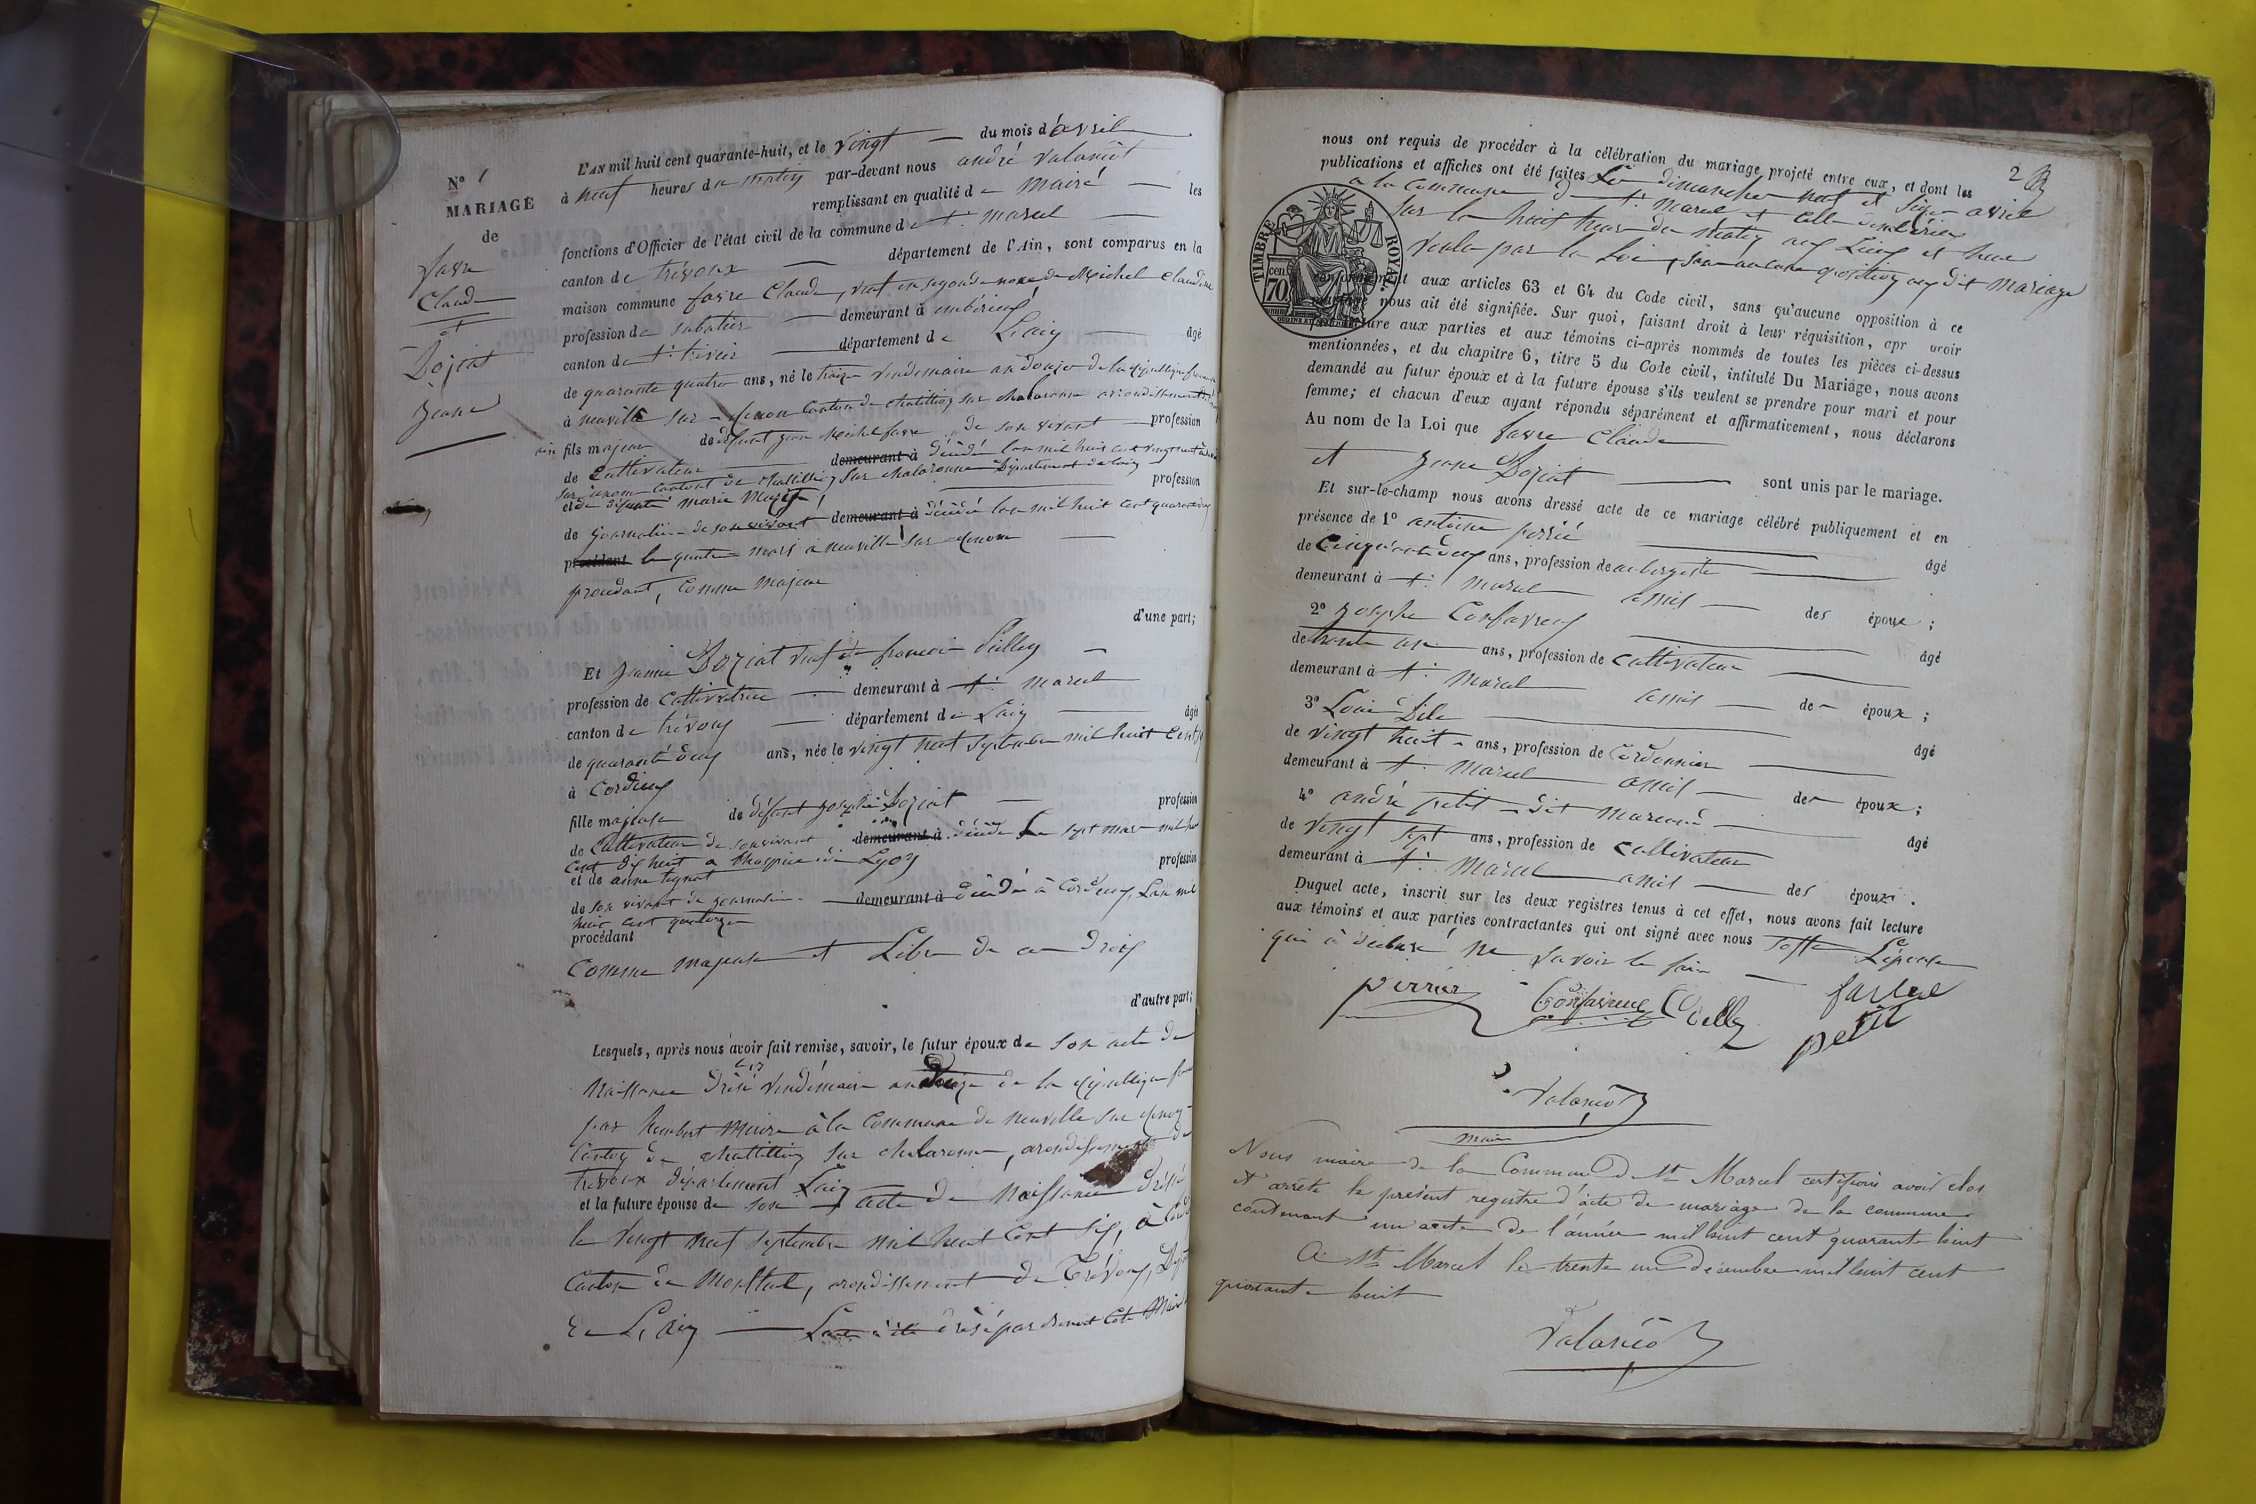 N° 1
MARIAGE
de
favre
Claude
et
Doziat
Jeane
L'AN mil huit cent quarante-huit, et le vingt du mois d'avril
à neuf heures du matin par-devant nous andré valansot
remplissant en qualité de maire les
fonctions d'Officier de l'état civil de la commune de st marcel
canton de trévoux département de l'Ain, sont comparus en la
maison commune favre Claude, veuf en segonde noce de Michel Claudine
profession de sabotier demeurant à
canton de st trivier département de L'ain âgé
de quarante quatre ans, né le treize vendémiaire an douze de la république
à neuville sur renon canton de chatillon sur chalaronne arondissement
fils majeur de défunt jean Michel favre de son vivant profession
de Cultivateur demeurant à décédé lan mil huit cent
sur renom canton de chatillon sur chalaronne département de lain
et de défunte marie profession
de journalière de son vivant demeurant à décédée lan mil huit cent quarante
procédant le quatre mars à neuville sur renom
procédant, comme majeur
d'une part;
Et jeanne Doziat veuve de françois
profession de Cultivatrice demeurant à st marcel
canton de trévoux département de Lain âgée
de quarante deux ans, née le vingt neuf septembre mil huit cent
à Cordieux
fille majeure de défunt joseph Doziat profession
de Cultivateur de son vivant demeurant à décédé le sept mars mil huit
cent dix huit a lhospice de Lyon
et de anne tignat profession
de son vivant de journalière demeurant à décédée à Cordieux, Lan mil
huit cent quatorze
procédant
Comme majeure et Libre de ces droits
d'autre part;
Lesquels, après nous avoir fait remise, savoir, le futur époux de son acte de
naissance dréssé vendémiaire an douze de la république
par humbert maire à la Commune de neuville sur renon
Canton de chattillon sur chalaronne, arondissement de
trévoux département Lain
et la future épouse de son acte de naissance dréssé
le vingt neuf septembre mil huit cent six, à
Canton de Montluel, arondissement de Trévoux,
de L'ain Lacte à été drésé par Maire
2
nous ont requis de procéder à la célébration du mariage projeté entre eux, et dont les
publications et affiches ont été faites Les dimanches neuf et seize avril
a la Commune de st marcel et celle
sur la neuf heure du matin aux Lieux et heure
voulu par la Loi, sans aucune oposition au dit mariage
TIMBRE ROYAL.
cen 70
conformément aux articles 63 et 64 du Code civil, sans qu'aucune opposition à ce
mariage nous ait été signifiée. Sur quoi, faisant droit à leur réquisition, apr avoir
lecture aux parties et aux témoins ci-après nommés de toutes les pièces ci-dessus
mentionnées, et du chapitre 6, titre 5 du Code civil, intitulé Du Mariage, nous avons
demandé au futur époux et à la future épouse s'ils veulent se prendre pour mari et pour
femme; et chacun d'eux ayant répondu séparément et affirmativement, nous déclarons
Au nom de la Loi que favre Claude
et Jeane Doziat sont unis par le mariage.
Et sur-le-champ nous avons dressé acte de ce mariage célébré publiquement et en
présence de 1° antoine perrié âgé
de Cinquante deux ans, profession de aubergiste
demeurant à st marcel amis des époux;
2° josephe Confavreux âgé
de trente un ans, profession de cultivateur
demeurant à st marcel amis des époux;
3° Louis âgé
de vingt huit ans, profession de Cordonnier
demeurant à st marcel amis des époux;
4° andré petit dit âgé
de vingt sept ans, profession de cultivateur
demeurant à st marcel amis des époux.
Duquel acte, inscrit sur les deux registres tenus à cet effet, nous avons fait lecture
aux témoins et aux parties contractantes qui ont signé avec nous Lépouse
qui à déclaré ne savoir le faire
perrier Confavreux
petit
Valansot
maire
Nous maire de la Commune de St Marcel certifions avoir clos
et arrêté le présent registre d'acte de mariage de la commune
contenant un acte de l'année mil huit cent quarante huit
A St Marcel le trente un décembre mil huit cent
quarante huit
Valansot